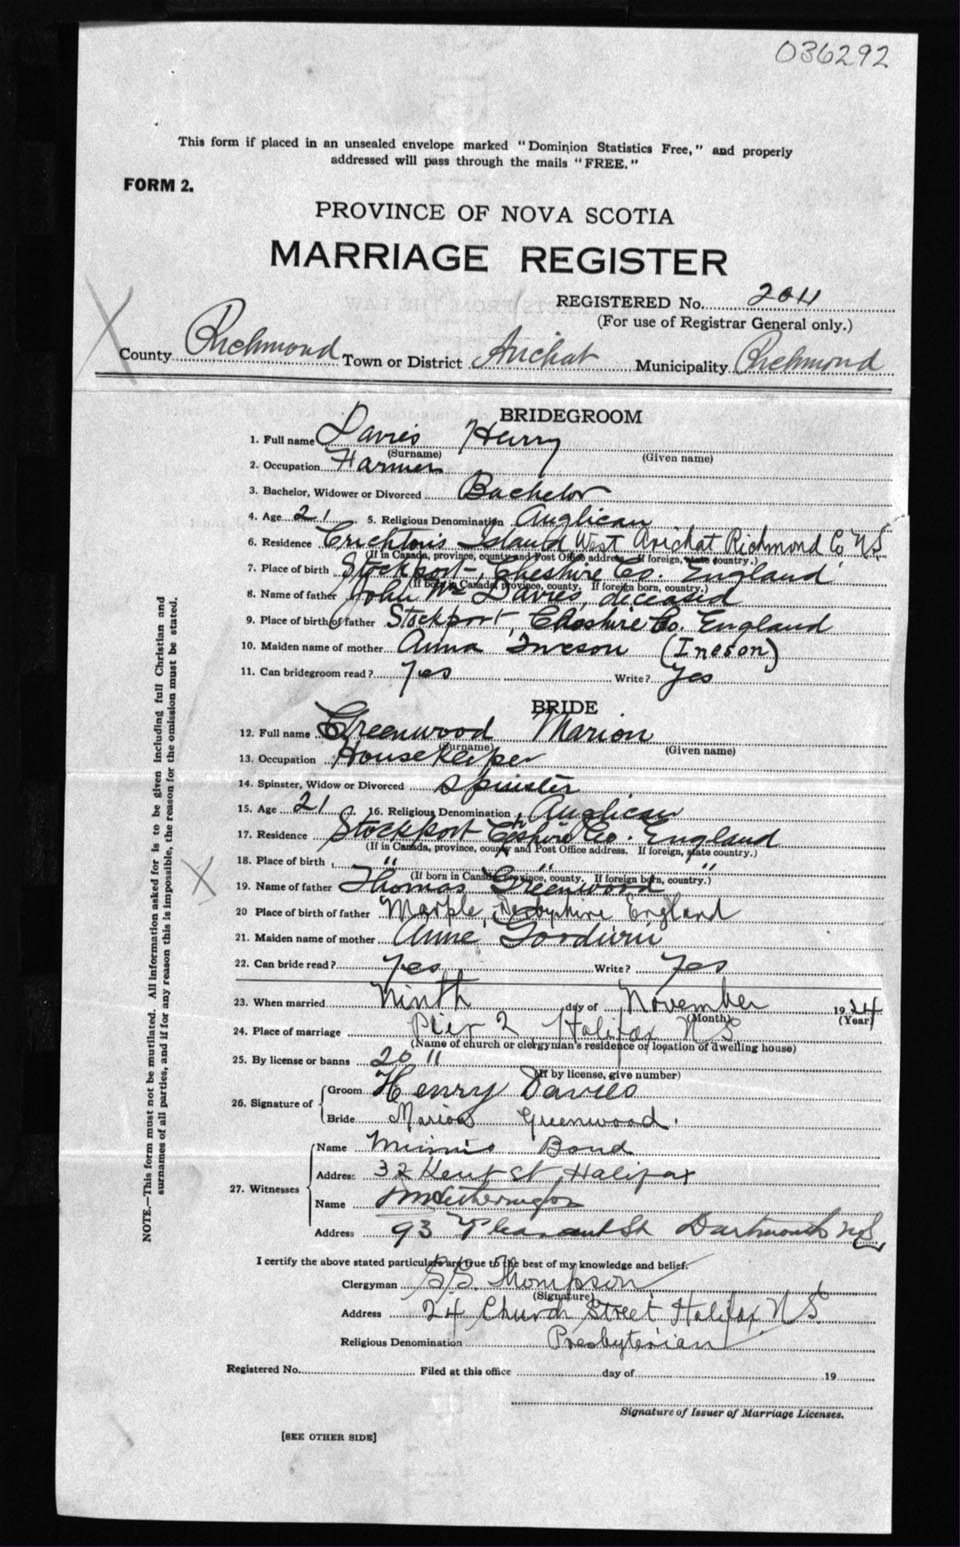 036292
This form if placed in an unsealed envelope marked "Dominion Statistics Free," and properly
addressed will pass through the mails "FREE."
FORM 2.
PROVINCE OF NOVA SCOTIA
MARRIAGE REGISTER
REGISTERED No. 2011
(For use of Registrar General only.)
County Richmond Town or District Arichat Municipality Richmond
BRIDEGROOM
1. Full name Davies Henry
(Surname) (Given name)
2. Occupation Farmer
3. Bachelor, Widower or Divorced Bachelor
4. Age 21 5. Religious Denomination Anglican
6. Residence Crichton's Island West Arichat Richmond Co NS
(If in Canada, province, county and Post Office address. If foreign, state country.)
7. Place of birth Stockport, Cheshire Co. England
(If born in Canada, province, county. If foreign born, country.)
8. Name of father John Wm Davies, deceased
9. Place of birth of father Stockport, Cheshire Co. England
10. Maiden name of mother Anna Ineson (Ineson)
11. Can bridegroom read? Yes Write? Yes
BRIDE
12. Full name Greenwood Marion
(Surname) (Given name)
13. Occupation Housekeeper
14. Spinster, Widow or Divorced Spinster
15. Age 21 16. Religious Denomination Anglican
17. Residence Stockport Cheshire Co. England
(If in Canada, province, county and Post Office address. If foreign, state country.)
18. Place of birth " " "
(If born in Canada province, county. If foreign born, country.)
19. Name of father Thomas Greenwood
20 Place of birth of father Marple, Derbyshire England
21. Maiden name of mother Anne Goodwin
22. Can bride read? Yes Write? Yes
23. When married Ninth day of November 1924
(Month) (Year)
24. Place of marriage Pier 2 Halifax N S
(Name of church or clergyman's residence or location of dwelling house)
25. By license or banns 2011
(If by license, give number)
26. Signature of
Groom Henry Davies
Bride Marion Greenwood.
27. Witnesses
Name Minnie Bond
Address 32 Kent St, Halifax
Name
Address 93 Pleasant St Dartmouth NS
I certify the above stated particulars are true to the best of my knowledge and belief.
Clergyman Thompson
(Signature)
Address 24 Church Street Halifax N S
Religious Denomination Presbyterian
Registered No. Filed at this office day of 19
Signature of Issuer of Marriage Licenses.
[SEE OTHER SIDE]
NOTE.—This form must not be mutilated. All information asked for is to be given including full Christian and
surnames of all parties, and if for any reason this is impossible, the reason for the omission must be stated.